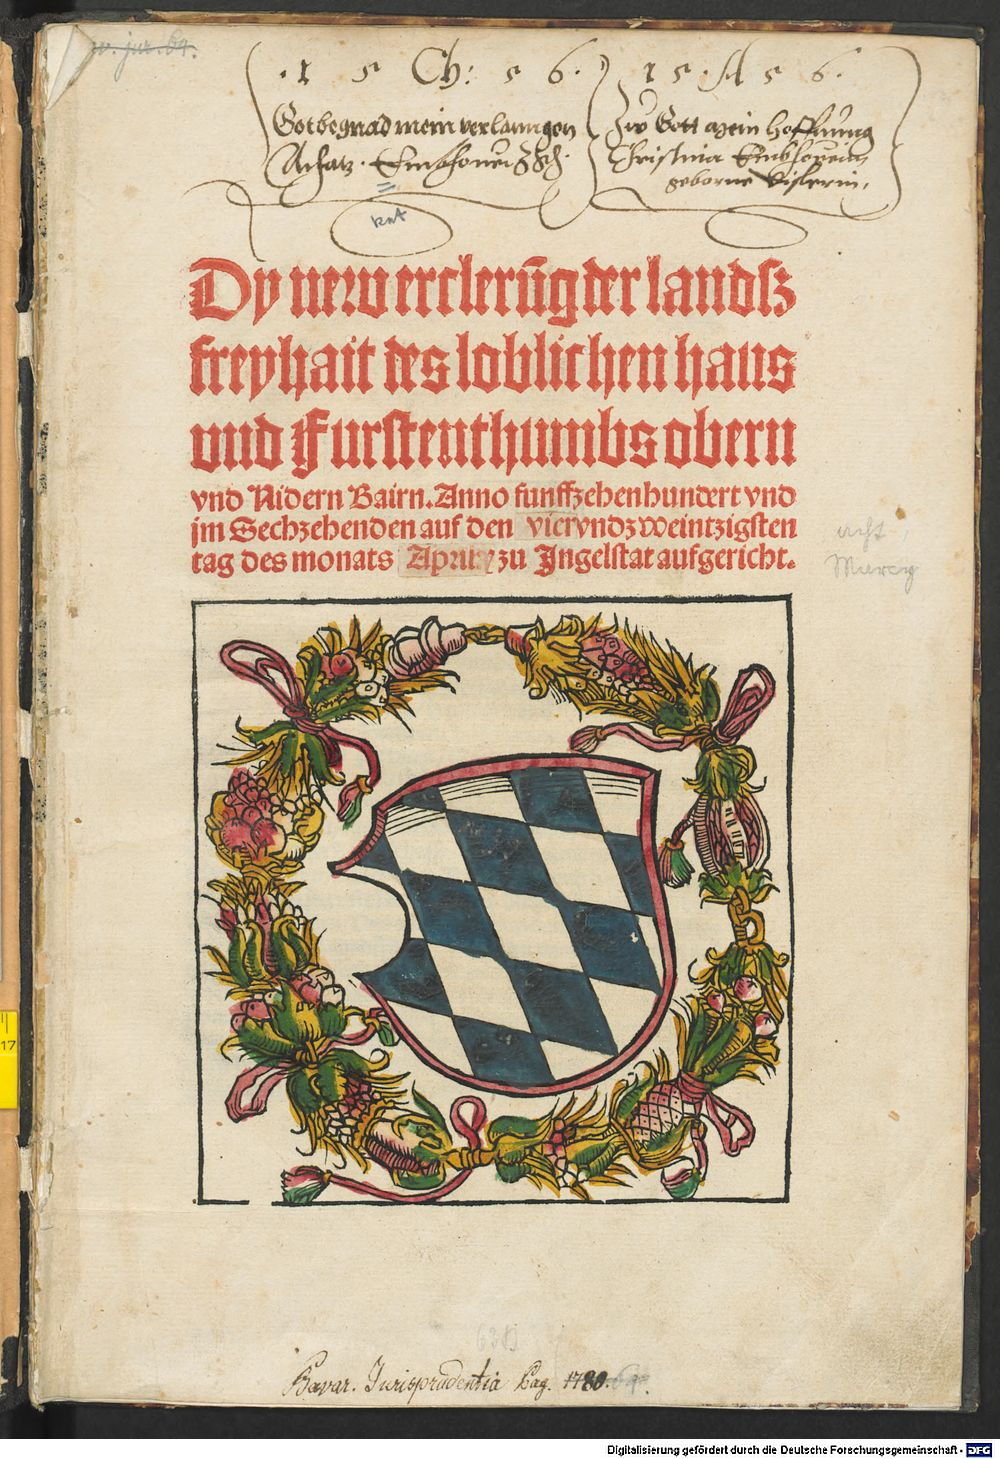 v. jur. 64.
. 1 5 Ch: 5 6 .
Gotbegnad mein verlanngen
1 5 . A 5 6 .
Zu Gott mein Hoffnung
geborne
Dy new erclerūg der landß
freyhait des loblichen haus
vnd Furstenthumbs obern
vnd Nidern Bairn. Anno funffzehenhundert vnd
jm Sechzehenden auf den viervndzweintzigsten
tag des monats Aprilis zu Ingelstat aufgericht.
acht
Marcy
Bavar. Jurisprudentia Pag. 1780.
17
Digitalisierung gefördert durch die Deutsche Forschungsgemeinschaft - DFG